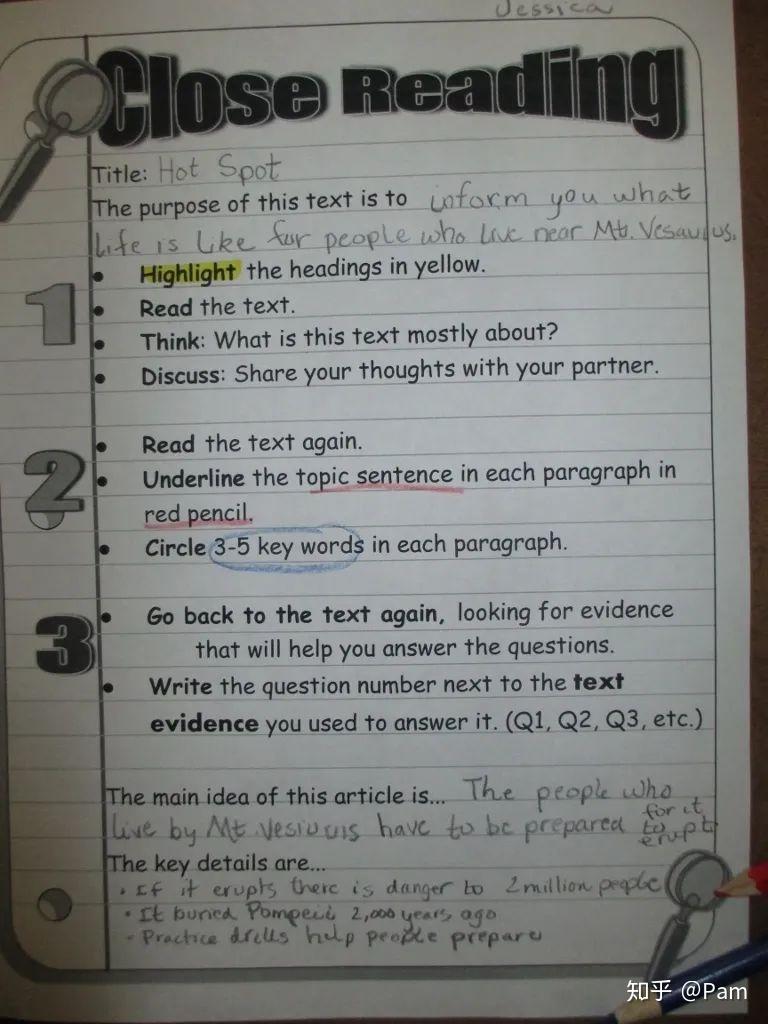 Jessica
Close Reading
Title: Hot Spot
The purpose of this text is to inform you what
life is like for people who live near Mt. Vesauius.
• Highlight the headings in yellow.
1
• Read the text.
• Think: What is this text mostly about?
• Discuss: Share your thoughts with your partner.
• Read the text again.
2
• Underline the topic sentence in each paragraph in
red pencil.
• Circle 3-5 key words in each paragraph.
• Go back to the text again, looking for evidence
3
that will help you answer the questions.
• Write the question number next to the text
evidence you used to answer it. (Q1, Q2, Q3, etc.)
The main idea of this article is... The people who
live by Mt. Vesiuuis have to be prepared for it to erupt
The key details are...
• If it erupts there is danger to 2 million people
• It buried Pompeii 2,000 years ago
- Practice drills help people prepare
知乎 @Pam